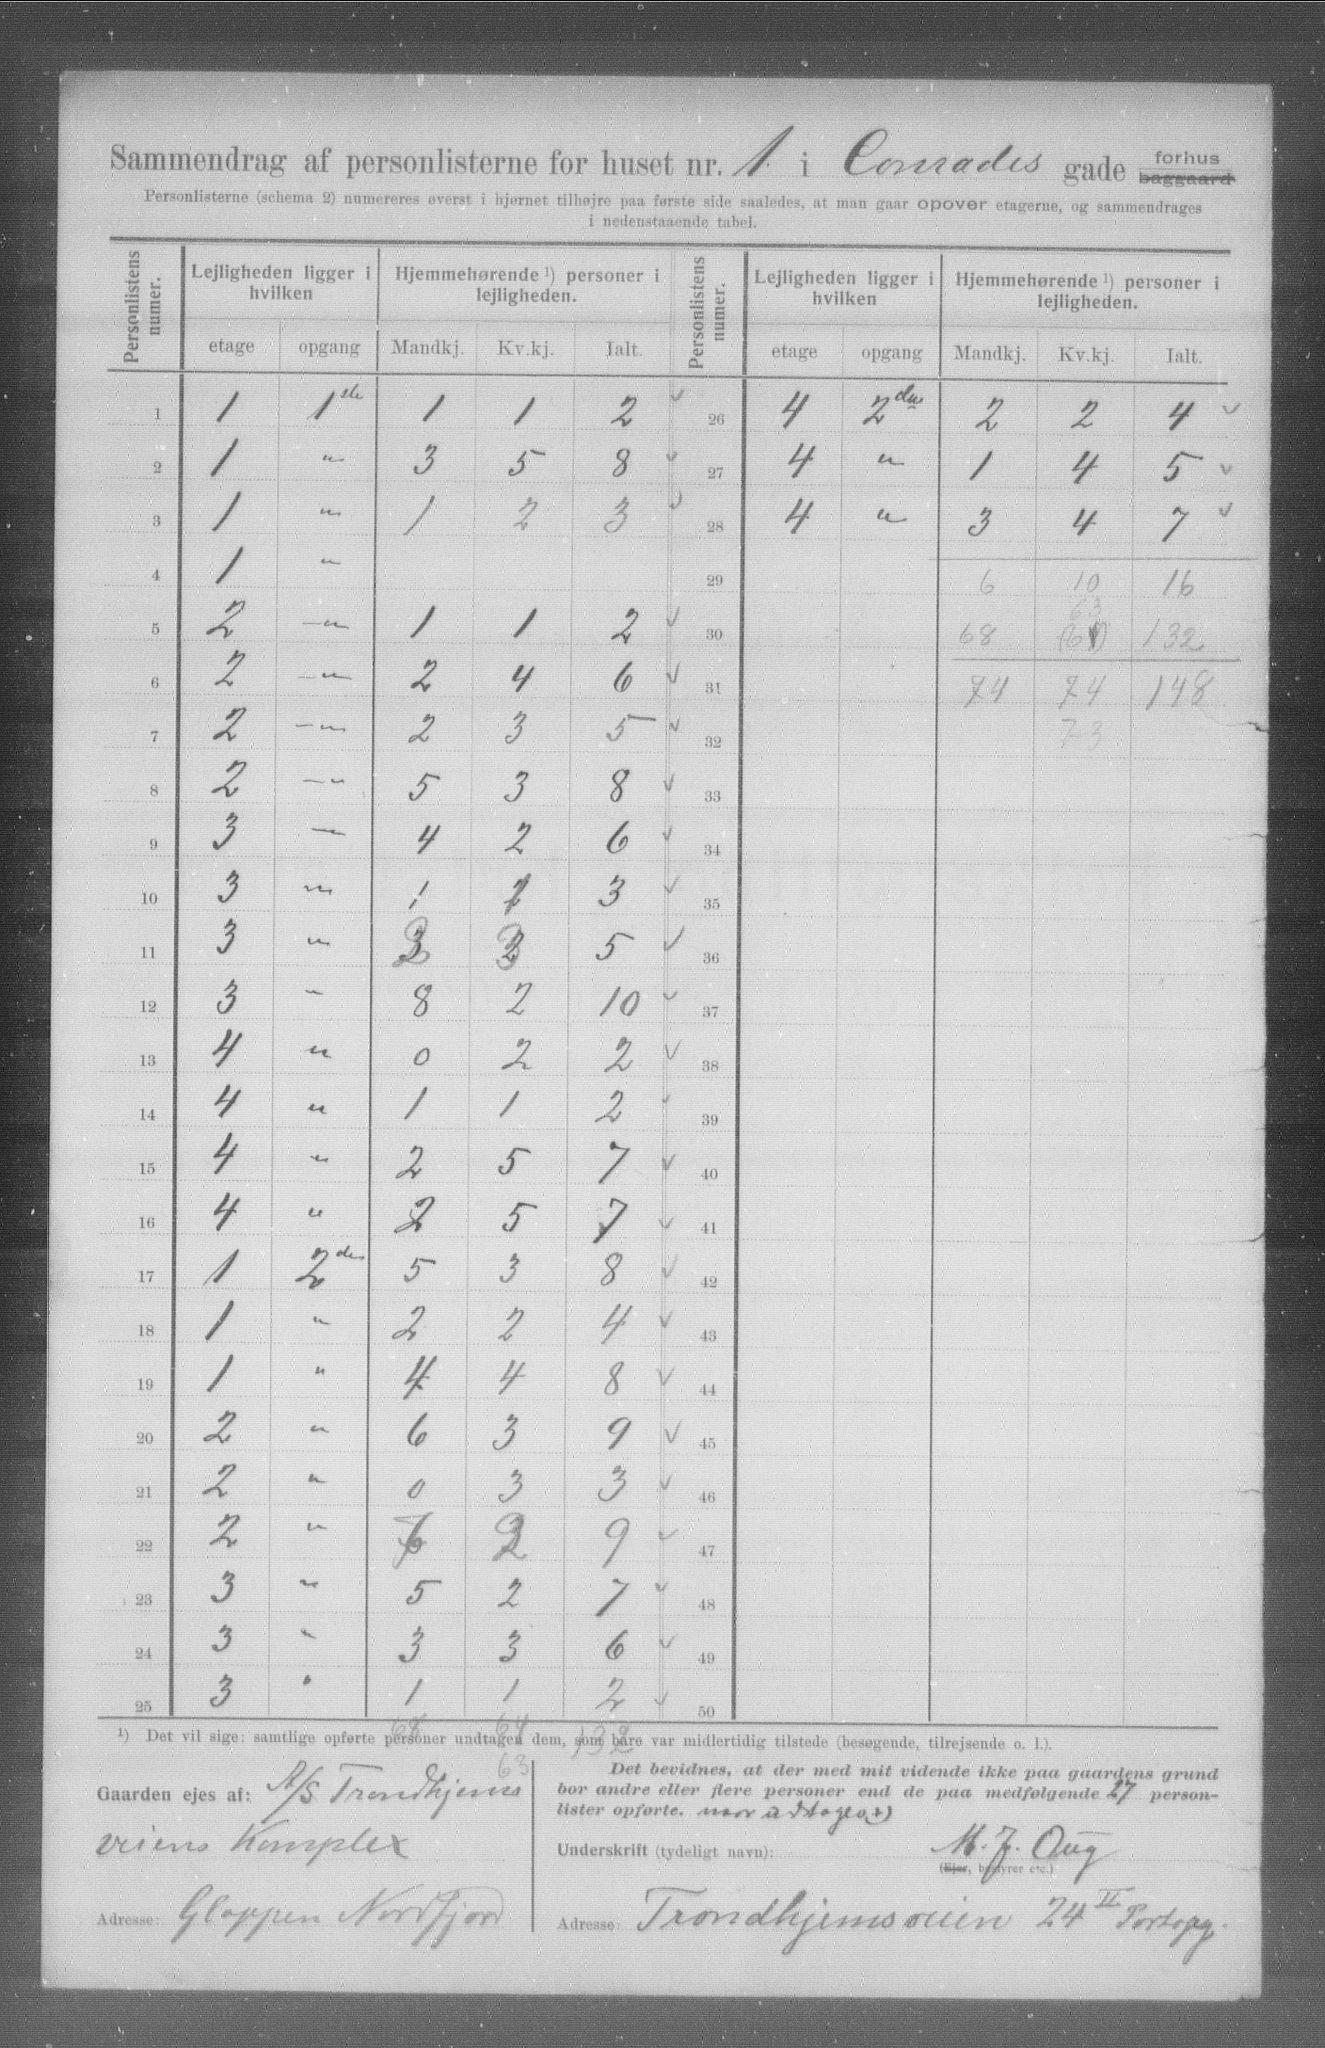 Sammendrag af personlisterne for huset nr. 1. i Conrades gade forhus baggaard
Personlisterne (schema 2) numereres øverst i hjørnet tilhøjre paa første side saaledes, at man gaar opover etagerne, og sammendrages
i nedenstaaende tabel.
Personlistens numer. Lejligheden ligger i hvilken Hjemmehørende ¹) personer i lejligheden. Personlistens numer. Lejligheden ligger i hvilken Hjemmehørende ¹) personer i lejligheden.
etage opgang Mandkj. Kv.kj. Ialt. etage opgang Mandkj. Kv.kj. Ialt.
1 1 1ste 1 1 2 26 4 2den 2 2 4
2 1 " 3 5 8 27 4 " 1 4 5
3 1 " 1 2 3 28 4 " 3 4 7
4 1 " 29 6 10 16
5 2 " 1 1 2 30 68 63 132
6 2 " 2 4 6 31 74 74 148
7 2 " 2 3 5 32 73
8 2 " 5 3 8 33
9 3 " 4 2 6 34
10 3 " 1 2 3 35
11 3 " 5 36
12 3 " 8 2 10 37
13 4 " 0 2 2 38
14 4 " 1 1 2 39
15 4 " 2 5 7 40
16 4 " 2 5 7 41
17 1 2den 5 3 8 42
18 1 " 2 2 4 43
19 1 " 4 4 8 44
20 2 " 6 3 9 45
21 2 " 0 3 3 46
22 2 " 7 2 9 47
23 3 " 5 2 7 48
24 3 " 3 3 6 49
25 3 " 1 1 2 50
68 64 132
¹) Det vil sige: samtlige opførte personer undtagen dem, som bare var midlertidig tilstede (besøgende, tilrejsende o. l.).
63
Gaarden ejes af: A/S Trondhjems
veiens Komplex
Adresse: Gloppen Nordfjord
Det bevidnes, at der med mit vidende ikke paa gaardens grund
bor andre eller flere personer end de paa medfølgende 27 person-
lister opførte.
Underskrift (tydeligt navn): M. J. Aug
(Ejer, bestyrer etc.)
Adresse: Trondhjemsveien 24 II Portopg.